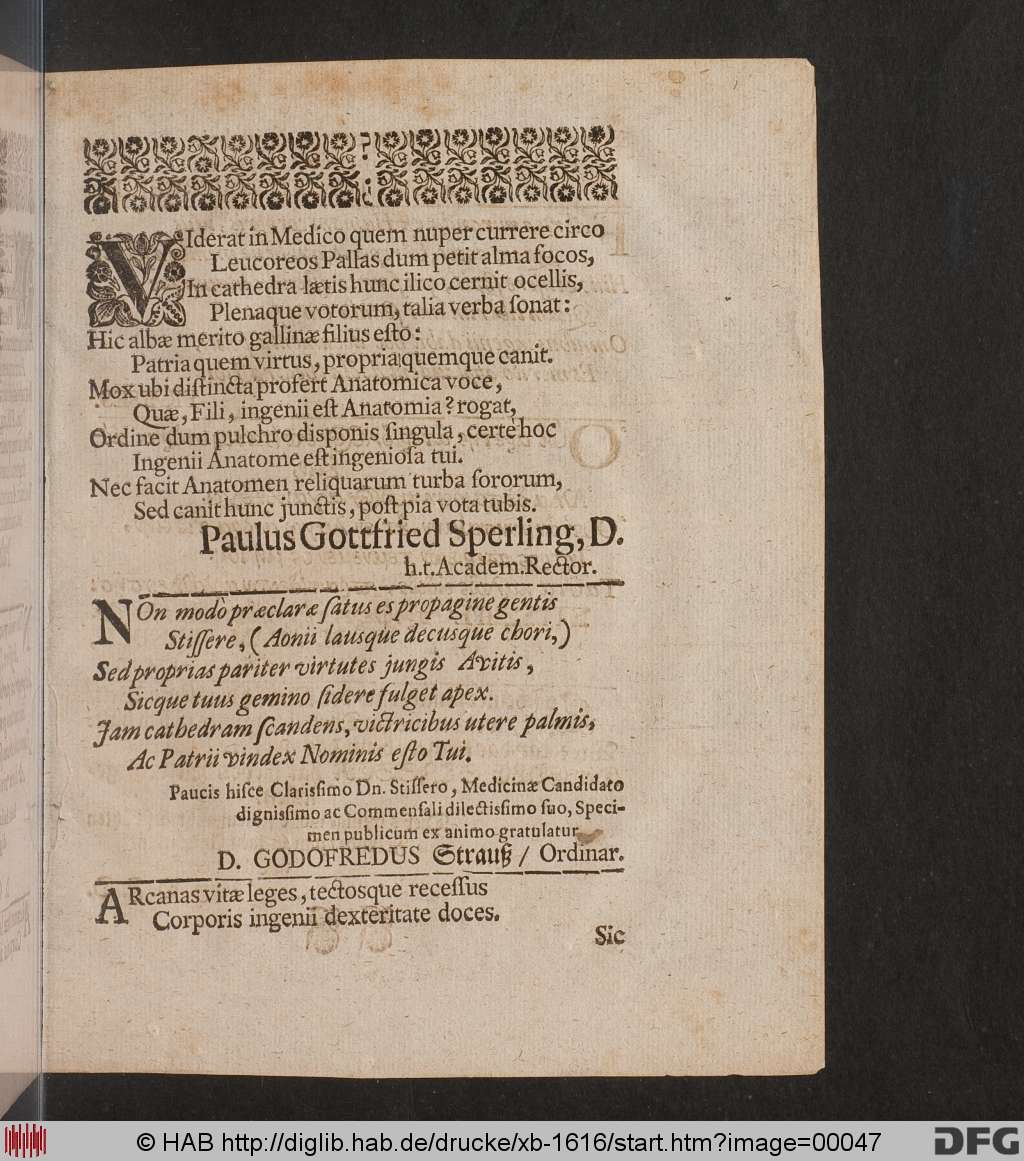 VIderat in Medico quem nuper currere circo
Leucoreos Pallas dum petit alma focos,
In cathedra lætis hunc ilico cernit ocellis,
Plenaque votorum, talia verba ſonat:
Hic albæ merito gallinæ filius eſto:
Patria quem virtus, propria quemque canit.
Mox ubi diſtincta profert Anatomica voce,
Quæ, Fili, ingenii eſt Anatomia? rogat,
Ordine dum pulchro disponis ſingula, certè hoc
Ingenii Anatome eſt ingenioſa tui.
Nec facit Anatomen reliquarum turba ſororum,
Sed canit hunc junctis, poſt pia vota tubis.
Paulus Gottfried Sperling, D.
h.t. Academ. Rector.
NOn modò præclaræ ſatus es propagine gentis
Stiſſere, (Aonii lausque decusque chori,)
Sed proprias pariter virtutes jungis Avitis,
Sicque tuus gemino ſidere fulget apex.
Jam cathedram ſcandens, victricibus utere palmis,
Ac Patrii vindex Nominis eſto Tui.
Paucis hiſce Clariſſimo Dn. Stiſſero, Medicinæ Candidato
digniſſimo ac Commenſali dilectiſſimo ſuo, Speci-
men publicum ex animo gratulatur
D. GODOFREDUS Strauß / Ordinar.
ARcanas vitæ leges, tectosque receſſus
Corporis ingenii dexteritate doces.
Sic
© HAB http://diglib.hab.de/drucke/xb-1616/start.htm?image=00047
DFG